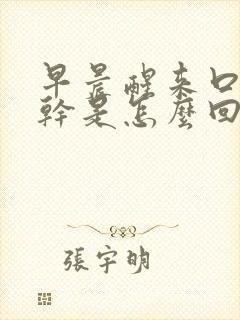 早晨醒来口
幹是怎麼回
張宇明